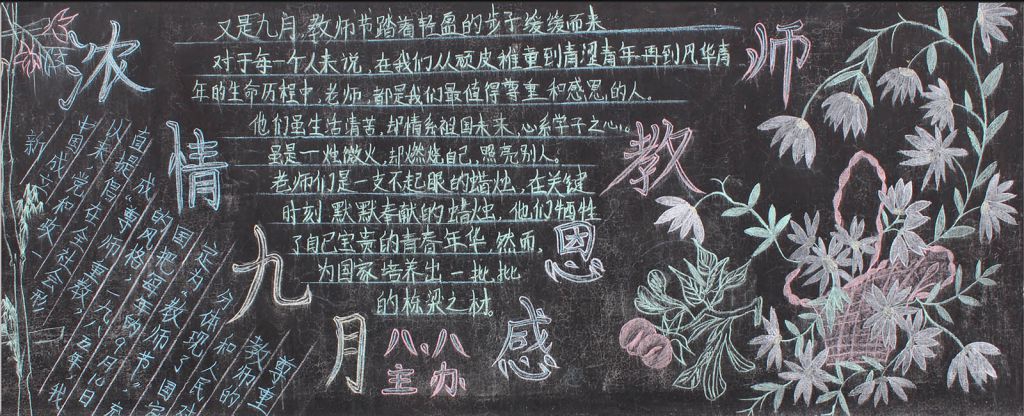 浓情九月
感恩教师
又是九月,教师节踏着轻盈的步子缓缓而来
对于每一个人来说,在我们从顽皮稚童到青涩青年再到风华青
年的生命历程中,老师,都是我们最值得尊重和感恩的人。
他们虽生活清苦,却情系祖国未来,心系学子之心。
虽是一烛微火,却燃烧自己,照亮别人。
老师们是一支不起眼的蜡烛,在关键
时刻默默奉献的蜡烛,他们牺牲
了自己宝贵的青春年华,然而,
为国家培养出一批批
的栋梁之材。
八、八
主办
新
中国成立
以来党和政
直提倡在全社会形
成"尊师重教"
的风格一九八五年我
国把每年的9月10日
定为"教师节"
体现了国家
分和人民对
教师的
尊重